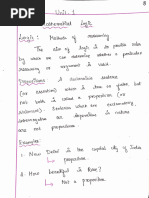 Unit - 1
Mathematical Logic
Logic : Methods of reasoning
The aim of logic is to provide rules
by which we can determine whether a particular
reasoning or argument is valid.
Proposition : A declarative sentence
(or) assertion which is true (or) false, but
not both is called a proposition (or)
statement. Sentences which are exclamatory,
interrogative or imperative in nature
are not propositions.
Examples :
1. New Delhi is the capital city of India
proposition.
2. How beautiful is Rose?
Not a proposition.